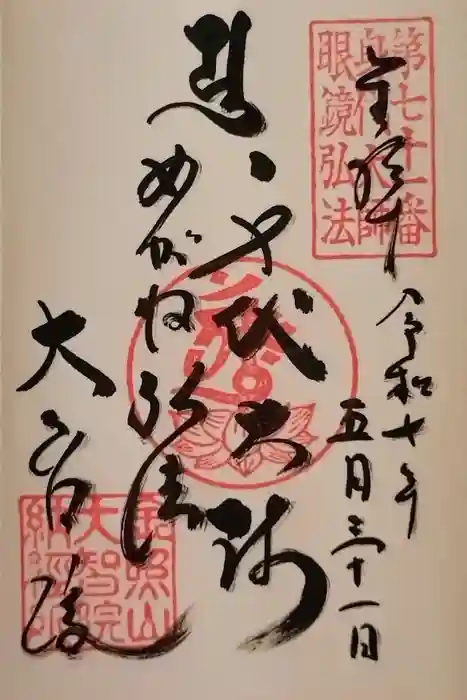 第七十一番
身代大師
眼鏡弘法
奉拝
令和七年
五月三十一日
身代大師
めがね弘法
大智院
金照山
大智院
納経所